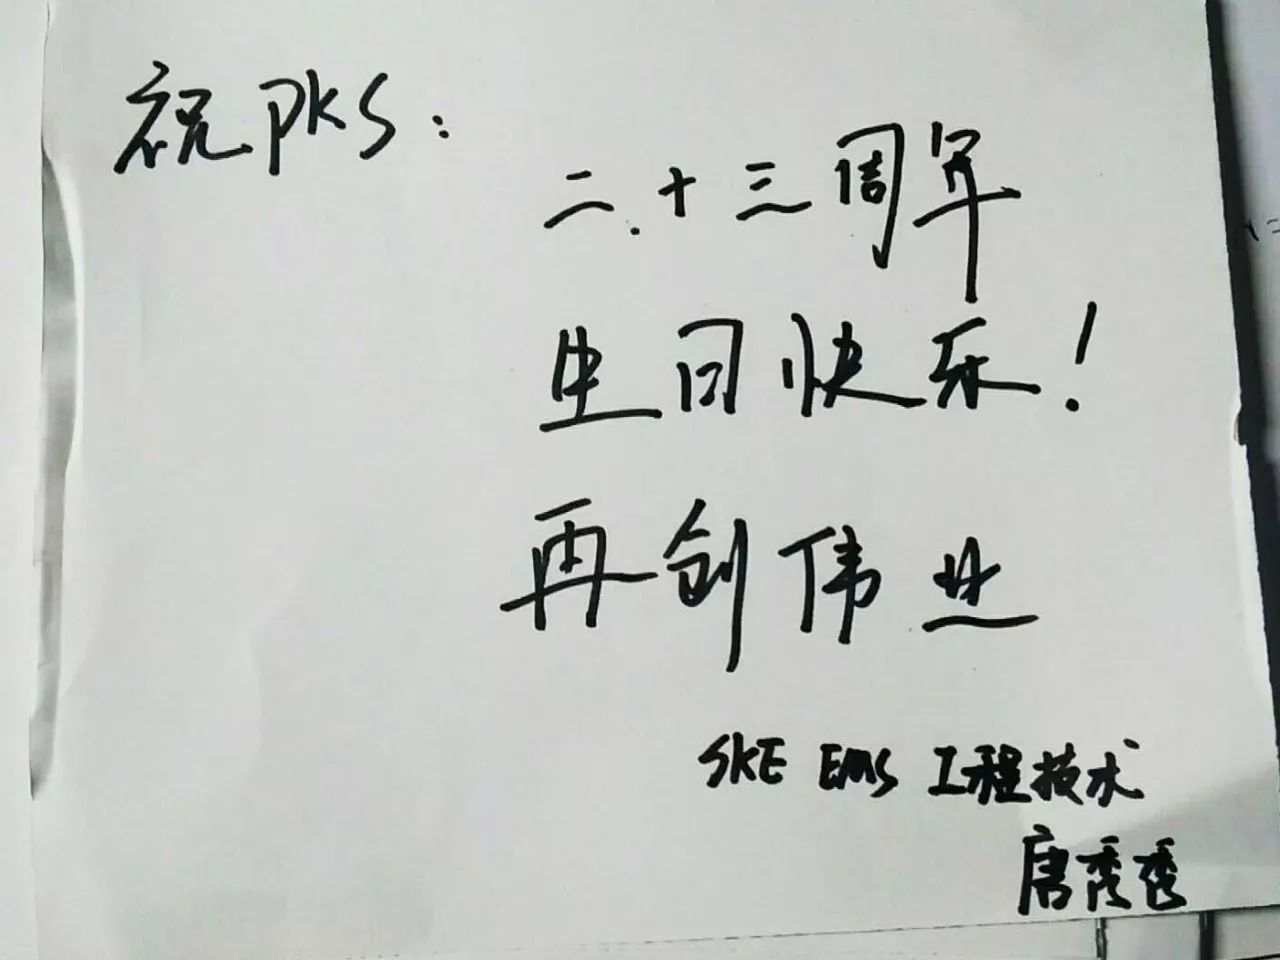 祝PKS:
二十三周年
生日快乐!
再创伟业
SKE EMS 工程技术
唐秀秀